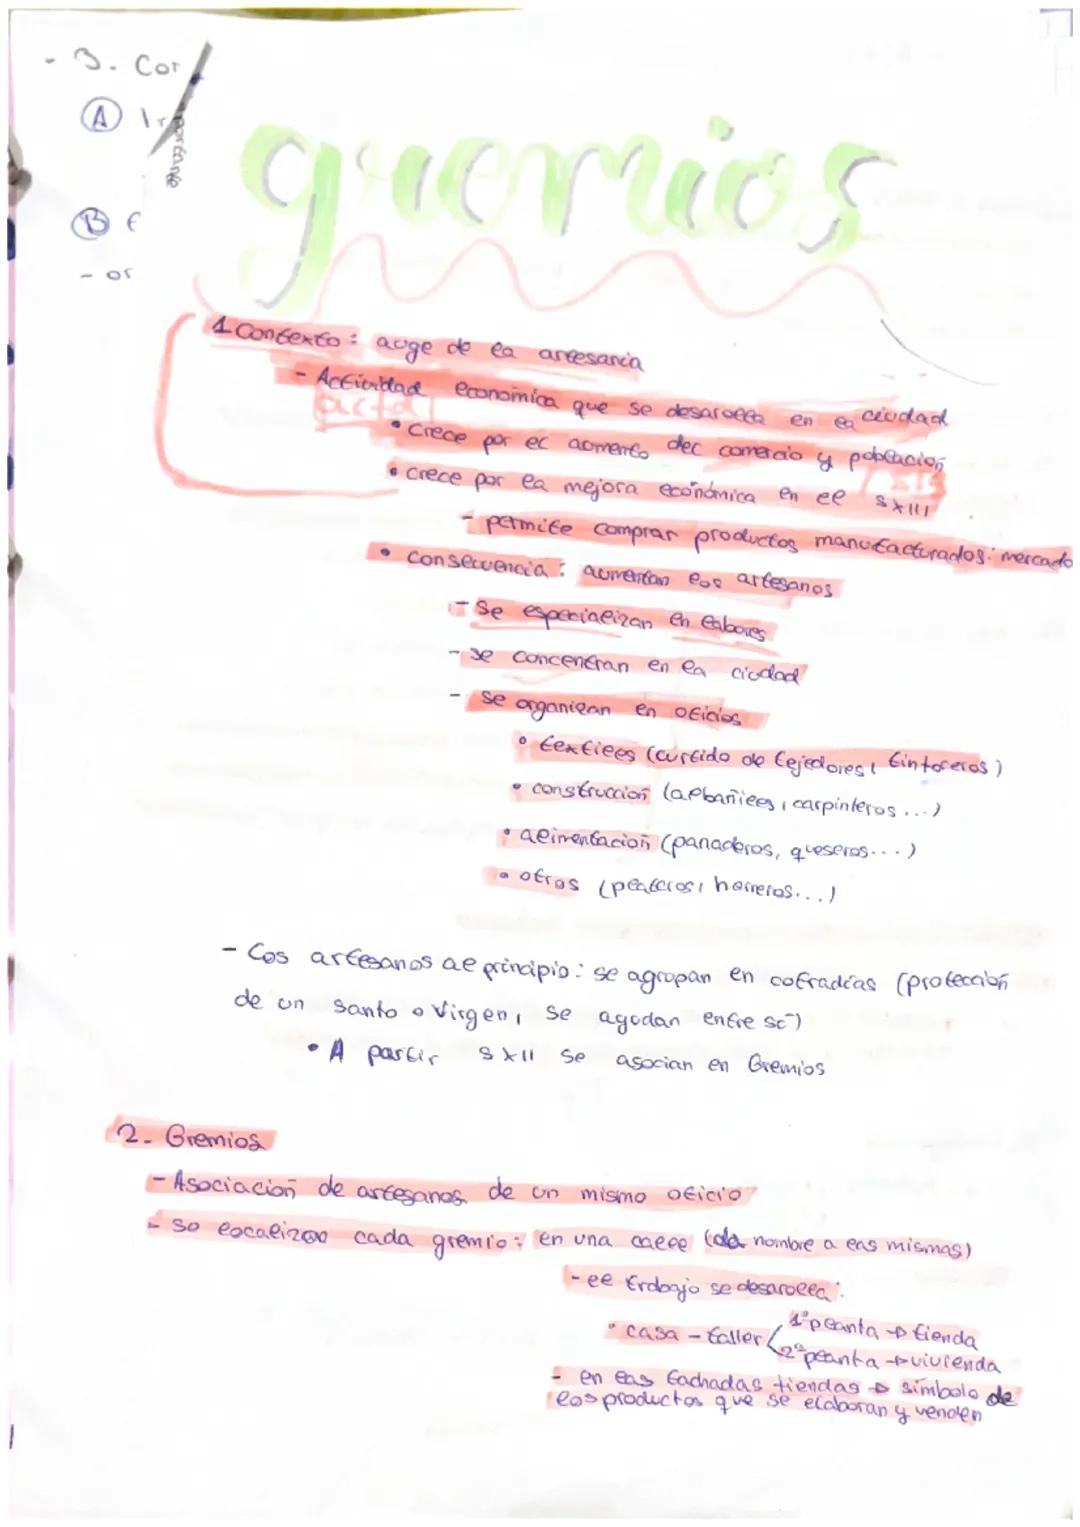 - 3. Cor
A Ir
importante
B E
- or
gremios
1 Contexto: auge de la artesanía
- Actividad económica que se desarolla en la ciudad
• crece por el aumento del comercio y población
• crece por la mejora económica en el s XIII
- permite comprar productos manufacturados: mercado
• consecuencia: aumentan los artesanos
- Se especializan en labores
- se concentran en la ciudad
- se organizan en oficios
• textiles (curtido de tejedores, tintoreros)
• construccion (albañiles, carpinteros...)
• alimentacion (panaderos, queseros...)
• otros (plateros, herreros...)
- Los artesanos al principio: se agrupan en cofradías (protección
de un santo o Virgen, se ayudan entre sí)
• A partir s XII se asocian en Gremios
2. Gremios
- Asociacion de artesanos de un mismo oficio
- se localizan cada gremio: en una calle (da nombre a las mismas)
- el trabajo se desarolla:
• casa - taller 1ª planta → tienda
2ª planta → vivienda
- en las fachadas tiendas → símbolo de
los productos que se elaboran y venden